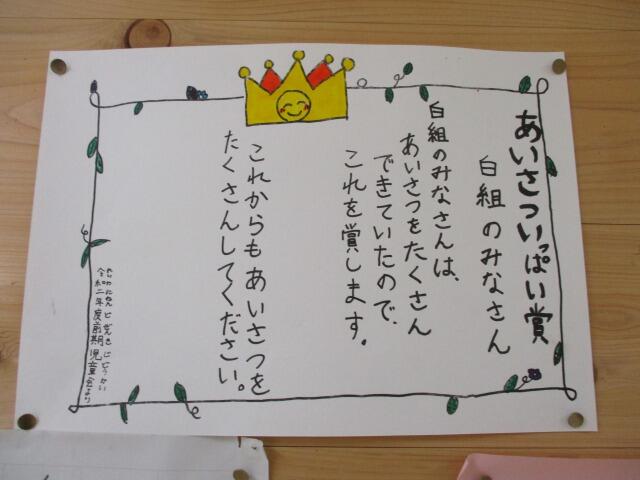 あいさついっぱい賞
白組のみなさん
白組のみなさんは、
あいさつをたくさん
できていたので、
これを賞します。
これからもあいさつを
たくさんしてください。
令和二年度前期児童会より